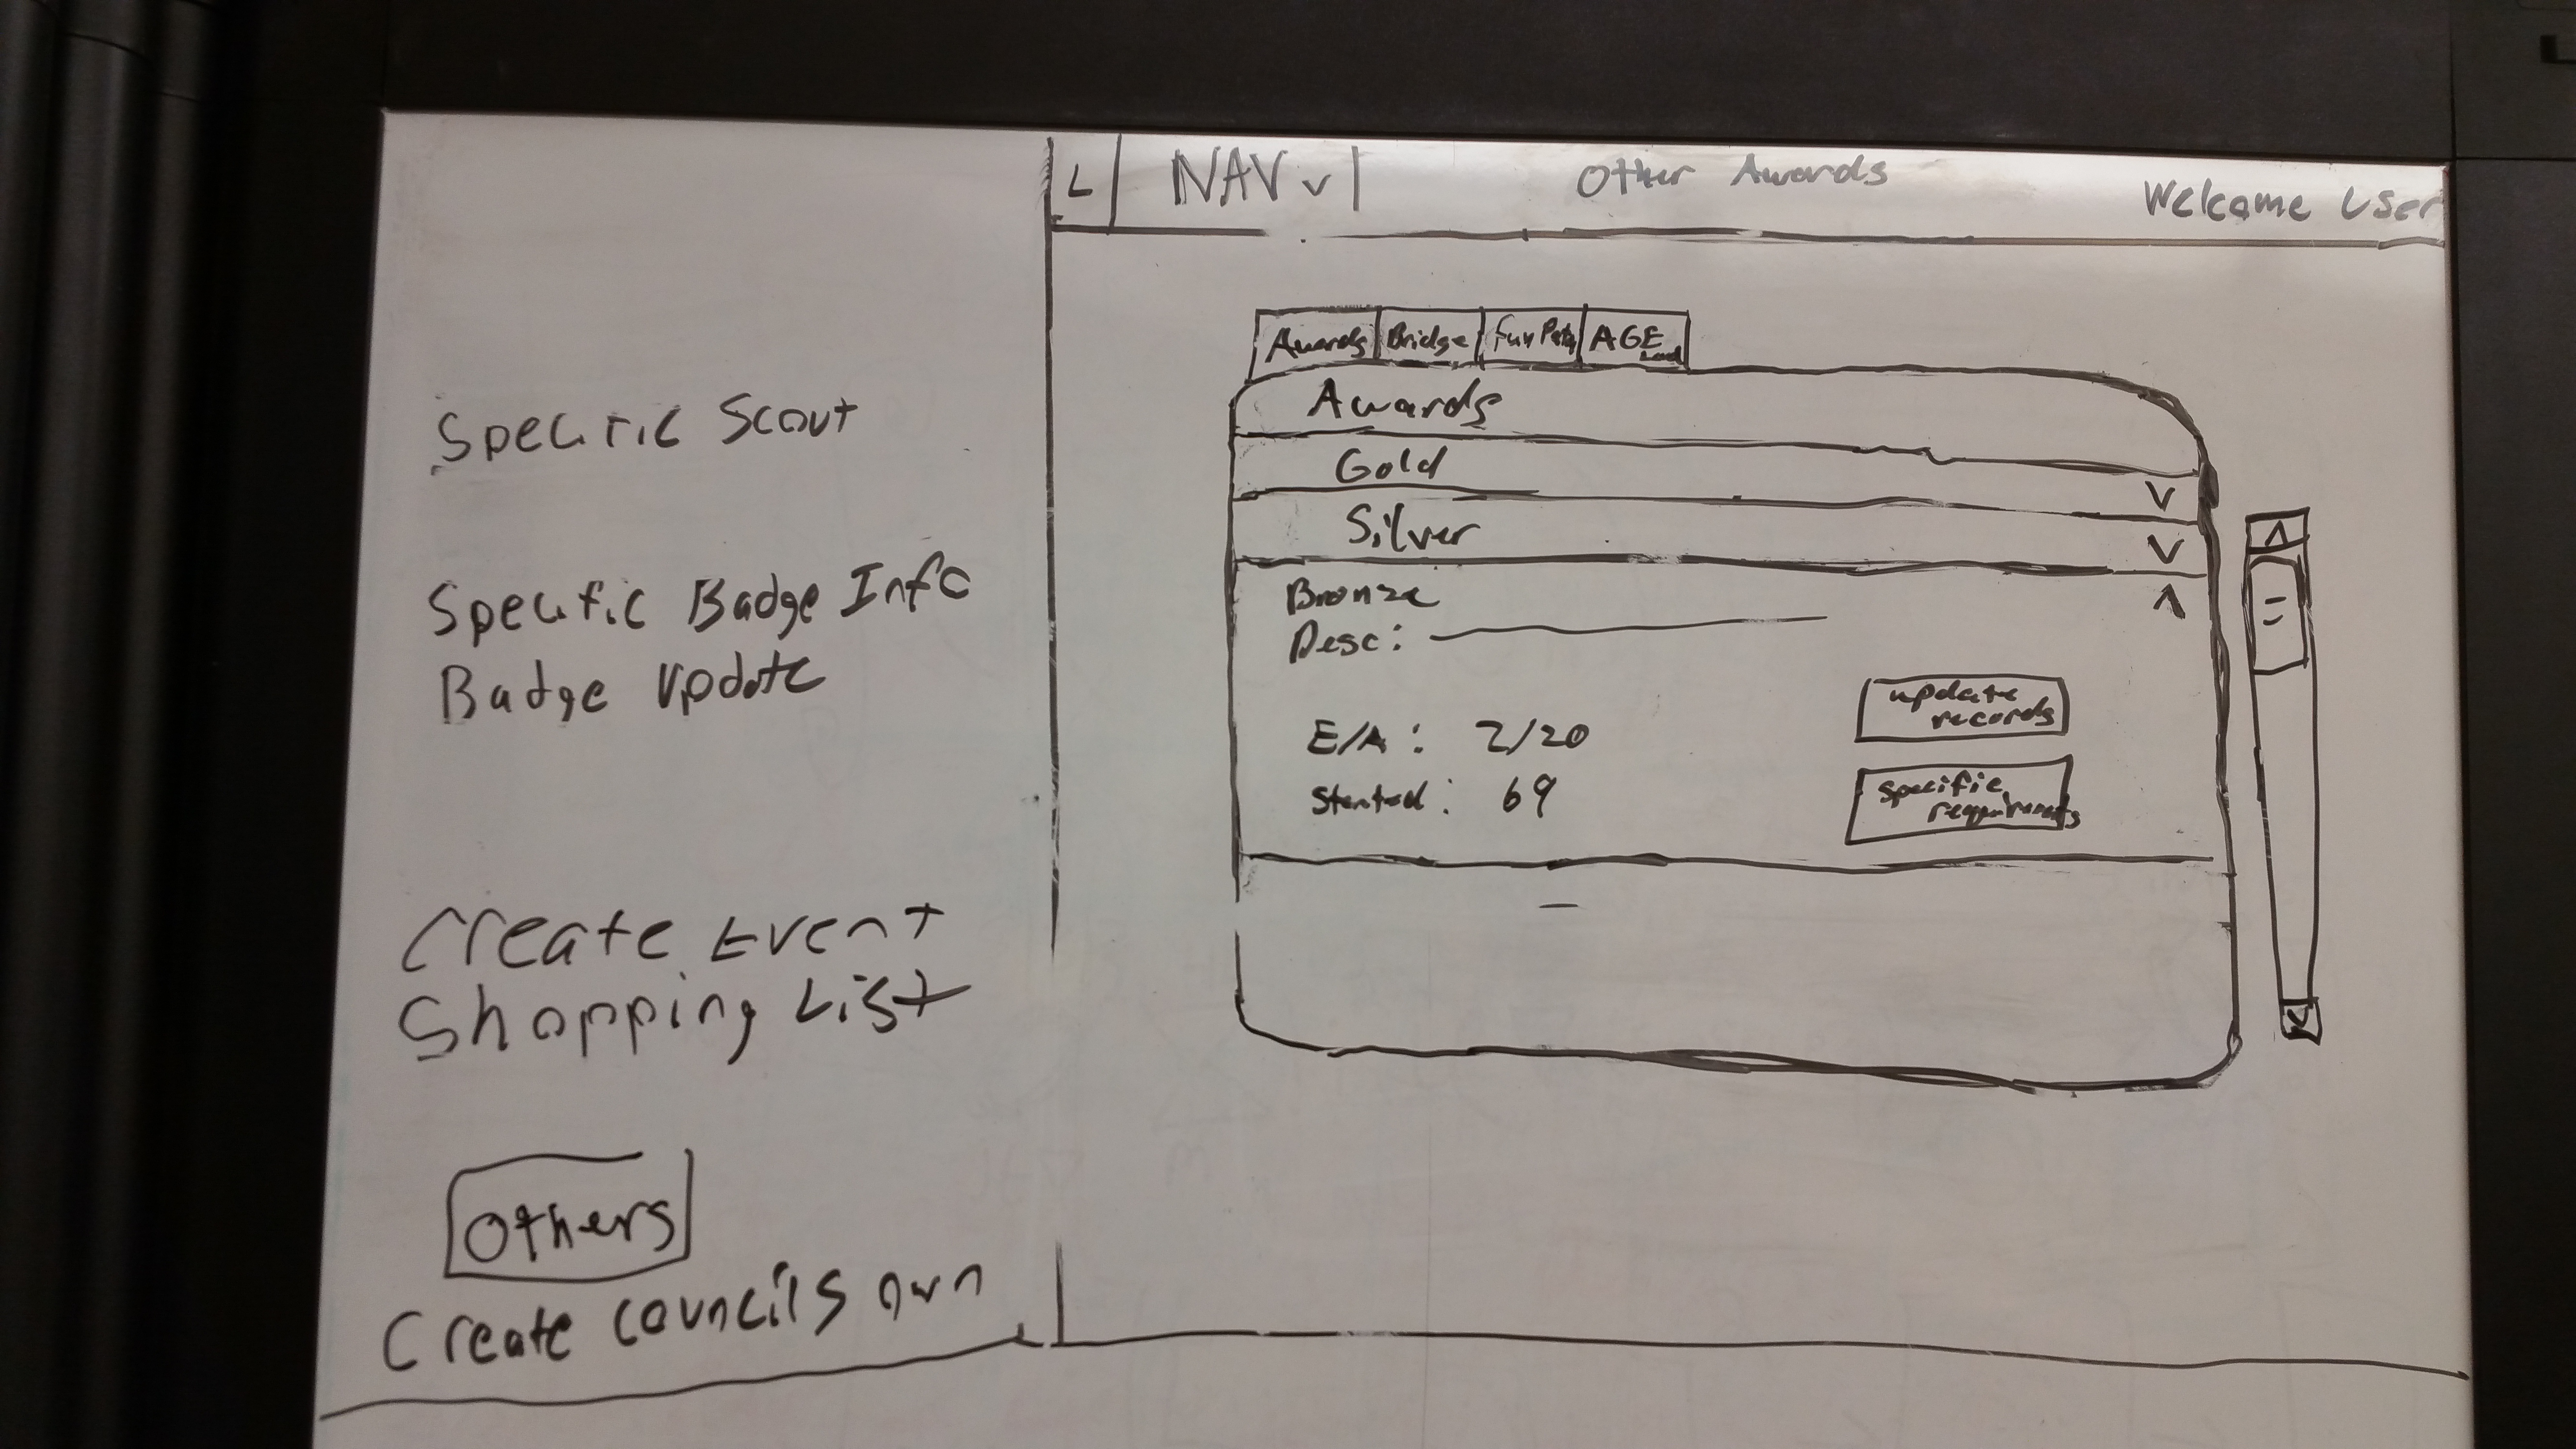 Specific Scout
Specific Badge Info
Badge Update
Create Event
Shopping List
Others
Create Councils own
L
NAV v
Other Awards
Welcome User
Awards
Bridge
AGE
Awards
Gold
V
Silver
V
Bronze
Λ
Desc:
E/A: 2/20
Started: 69
update
records
specific
requirements